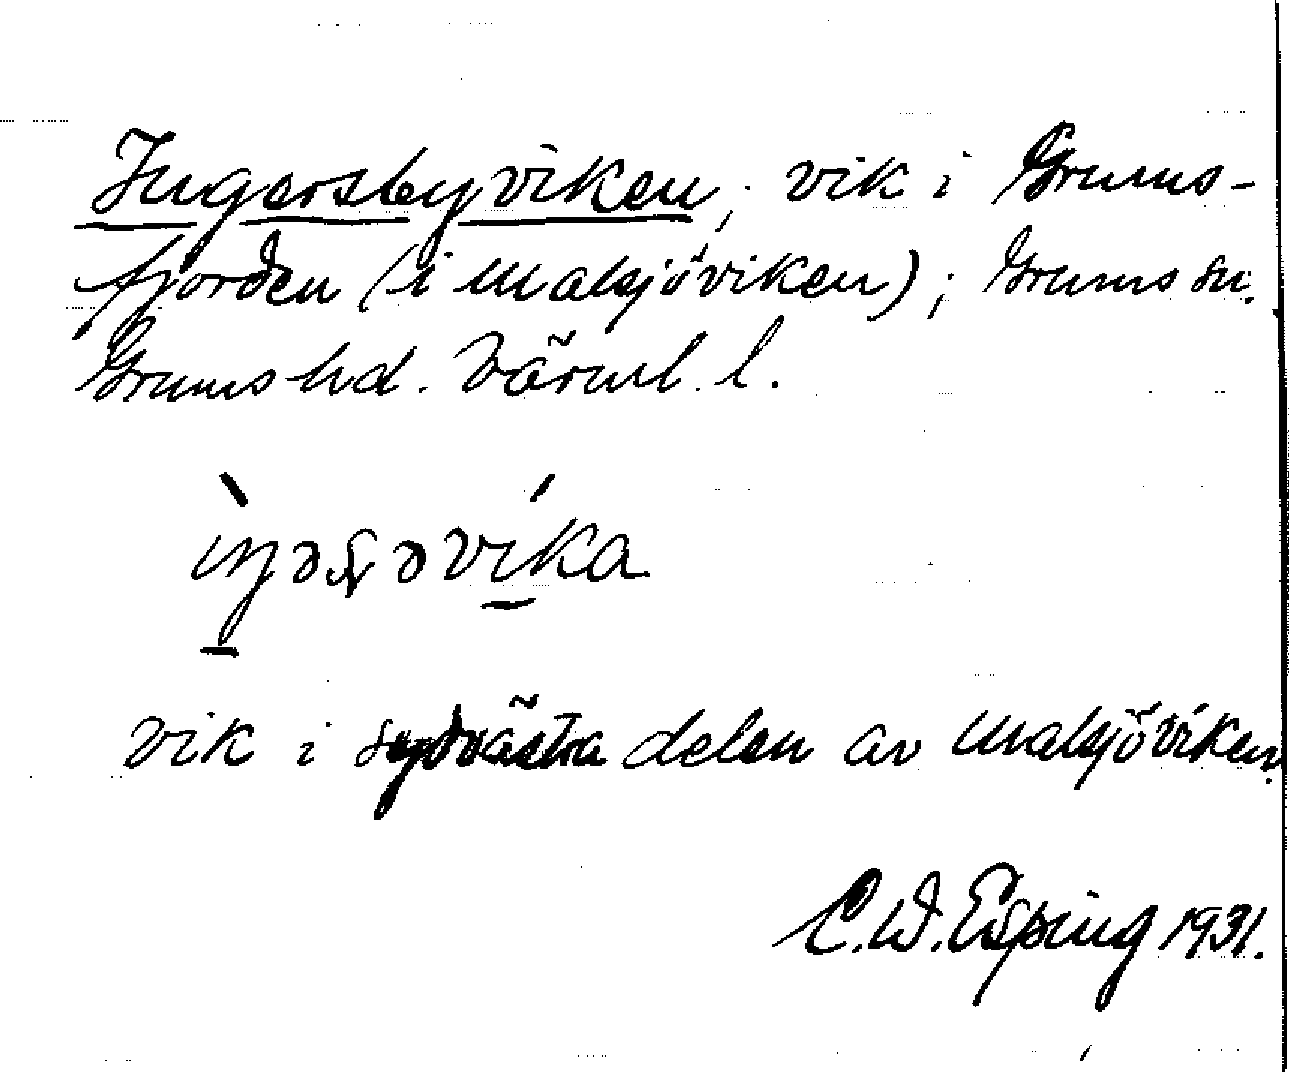 Ingersbyviken, vik i Grums-
fjorden (i Malsjöviken); Grums sn.
Grums hd. Värml. l.
vik i sydvästra delen av Malsjöviken.
C.W. Esping 1931.